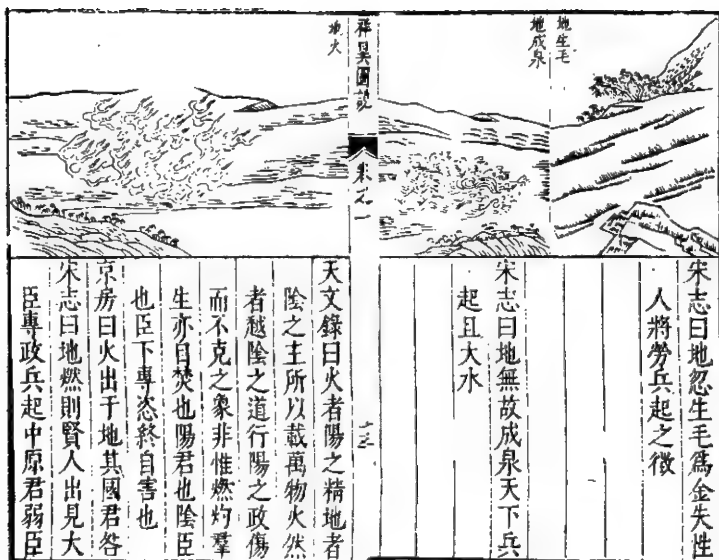 地生毛
地成泉
宋志曰地忽生毛為金失性
人將勞兵起之徵
宋志曰地無故成泉天下兵
起且大水
祥異圖說
卷之一
十三
地火
天文錄曰火者陽之精地者
陰之主所以載萬物火然
者越陰之道行陽之政傷
而不克之象非惟燃灼羣
生亦自焚也陽君也陰臣
也臣下專恣終自害也
京房曰火出于地其國君咎
宋志曰地燃則賢人出見大
臣專政兵起中原君弱臣